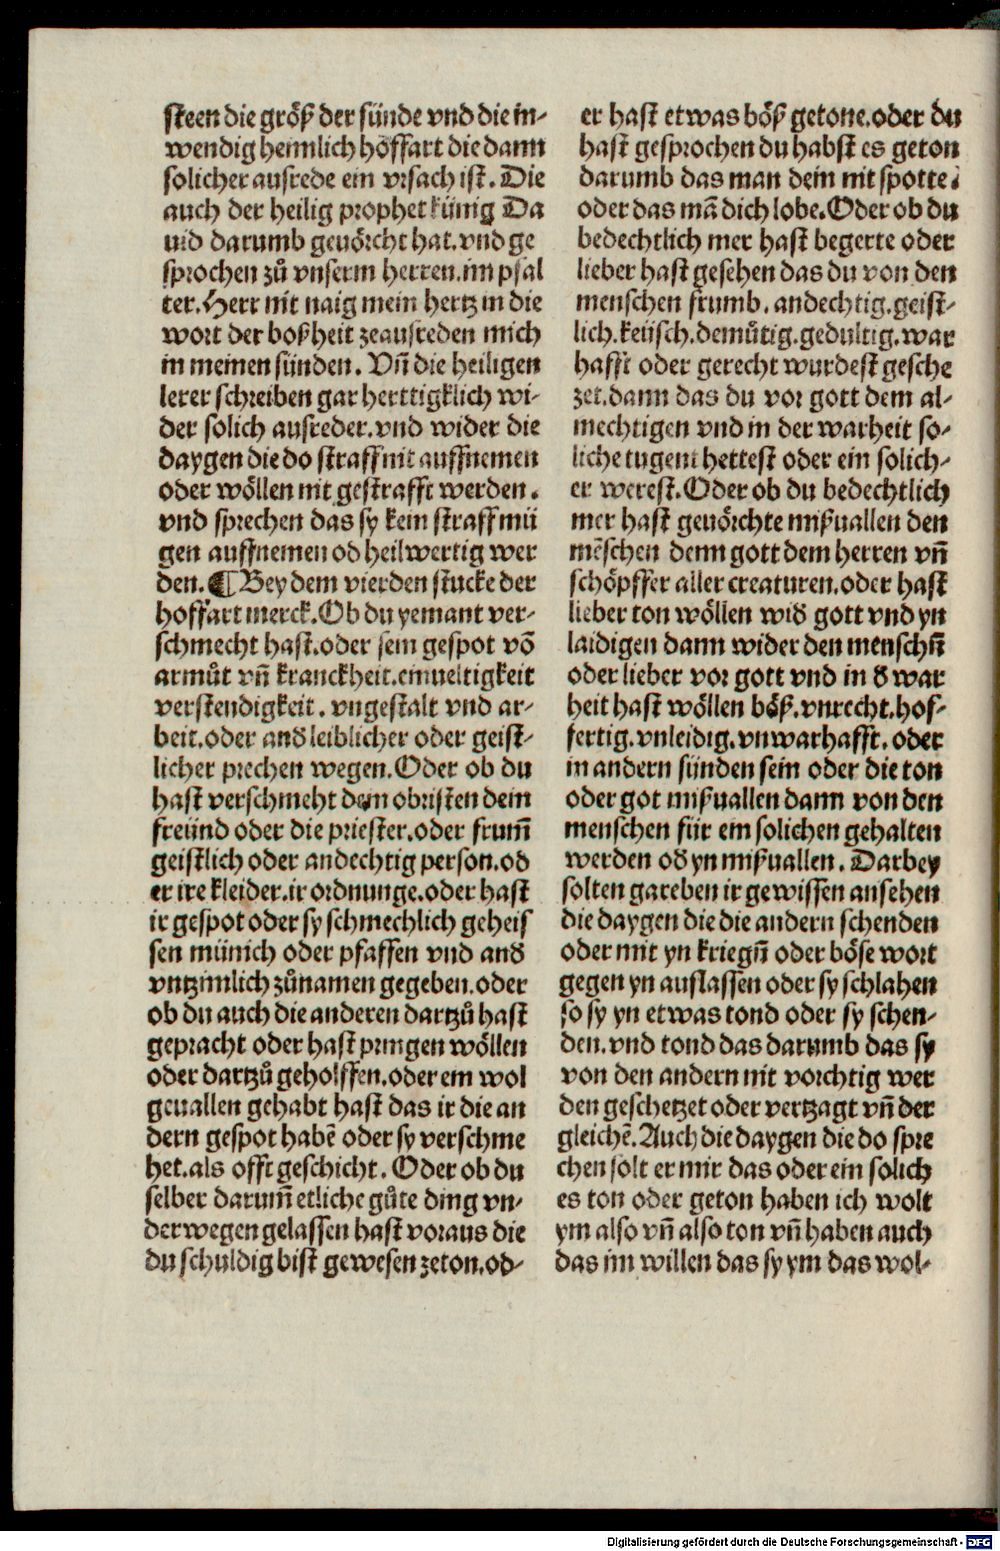 steen die größ der sünde vnd die in-
wendig heimlich hoffart die dann
solicher ausrede ein vrsach ist. Die
auch der heilig prophet künig Da
uid darumb geuörcht hat. vnd ge
sprochen zů vnserm herren. im psal
ter. Herr nit naig mein hertz in die
wort der boßheit zeausreden mich
in meinen sünden. Vn̄ die heiligen
lerer schreiben gar herttigklich wi-
der solich ausreder. vnd wider die
daygen die do straff nit auffnemen
oder wöllen nit gestrafft werden.
vnd sprechen das sy kein straff mü
gen auffnemen od heilwertig wer
den. ¶ Bey dem vierden stucke der
hoffart merck. Ob du yemant ver-
schmecht hast. oder sein gespot vō
armůt vn̄ kranckheit. einueltigkeit
verstendigkeit. vngestalt vnd ar-
beit. oder and̄ leiblicher oder geist-
licher prechen wegen. Oder ob du
hast verschmeht dem obristen dem
freünd oder die priester. oder frum̄
geistlich oder andechtig person. od
er ire kleider. ir ordnunge. oder hast
ir gespot oder sy schmechlich geheis
sen münich oder pfaffen vnd and̄
vntzimlich zůnamen gegeben. oder
ob du auch die anderen dartzů hast
gepracht oder hast pringen wöllen
oder dartzů geholffen. oder ein wol
geuallen gehabt hast das ir die an
dern gespot habē oder sy verschme
het. als offt geschicht. Oder ob du
selber darum̄ etliche gůte ding vn-
derwegen gelassen hast voraus die
du schuldig bist gewesen zeton. od-
er hast etwas böß getone. oder du
hast gesprochen du habst es geton
darumb das man dein nit spotte.
oder das mā dich lobe. Oder ob du
bedechtlich mer hast begerte oder
lieber hast gesehen das du von den
menschen frumb. andechtig. geist-
lich. keüsch. demůtig. gedultig. war
hafft oder gerecht wurdest gesche
zet. dann das du vor gott dem al-
mechtigen vnd in der warheit so-
liche tugent hettest oder ein solich-
er werest. Oder ob du bedechtlich
mer hast geuörchte mißuallen den
mēschen denn gott dem herren vn̄
schöpffer aller creaturen. oder hast
lieber ton wöllen wid̄ gott vnd yn
laidigen dann wider den menschn̄
oder lieber vor gott vnd in d̄ war
heit hast wöllen böß. vnrecht. hof-
fertig. vnleidig. vnwarhafft. oder
in andern sünden sein oder die ton
oder got mißuallen dann von den
menschen für ein solichen gehalten
werden od̄ yn mißuallen. Darbey
solten gar eben ir gewissen ansehen
die daygen die die andern schenden
oder mit yn kriegn̄ oder böse wort
gegen yn auslassen oder sy schlahen
so sy yn etwas tond oder sy schen-
den. vnd tond das darumb das sy
von den andern nit vorchtig wer
den geschetzet oder vertzagt vn̄ der
gleichē. Auch die daygen die do spre
chen solt er mir das oder ein solich
es ton oder geton haben ich wolt
ym also vn̄ also ton vn̄ haben auch
das im willen das sy ym das wol-
Digitalisierung gefördert durch die Deutsche Forschungsgemeinschaft - DFG